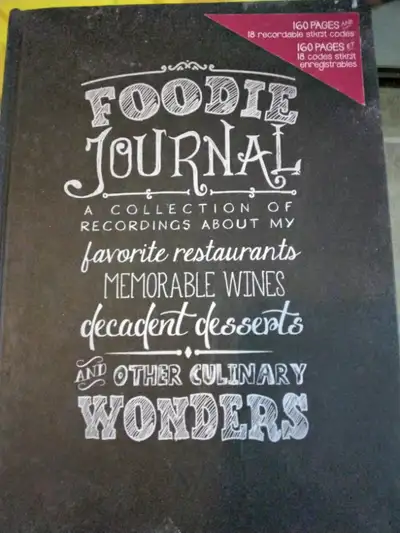 160 PAGES AND
18 recordable stikit codes
160 PAGES ET
18 codes stikit
enregistrables
FOODIE
JOURNAL
A COLLECTION OF
RECORDINGS ABOUT MY
favorite restaurants
MEMORABLE WINES
decadent desserts
AND OTHER CULINARY
WONDERS